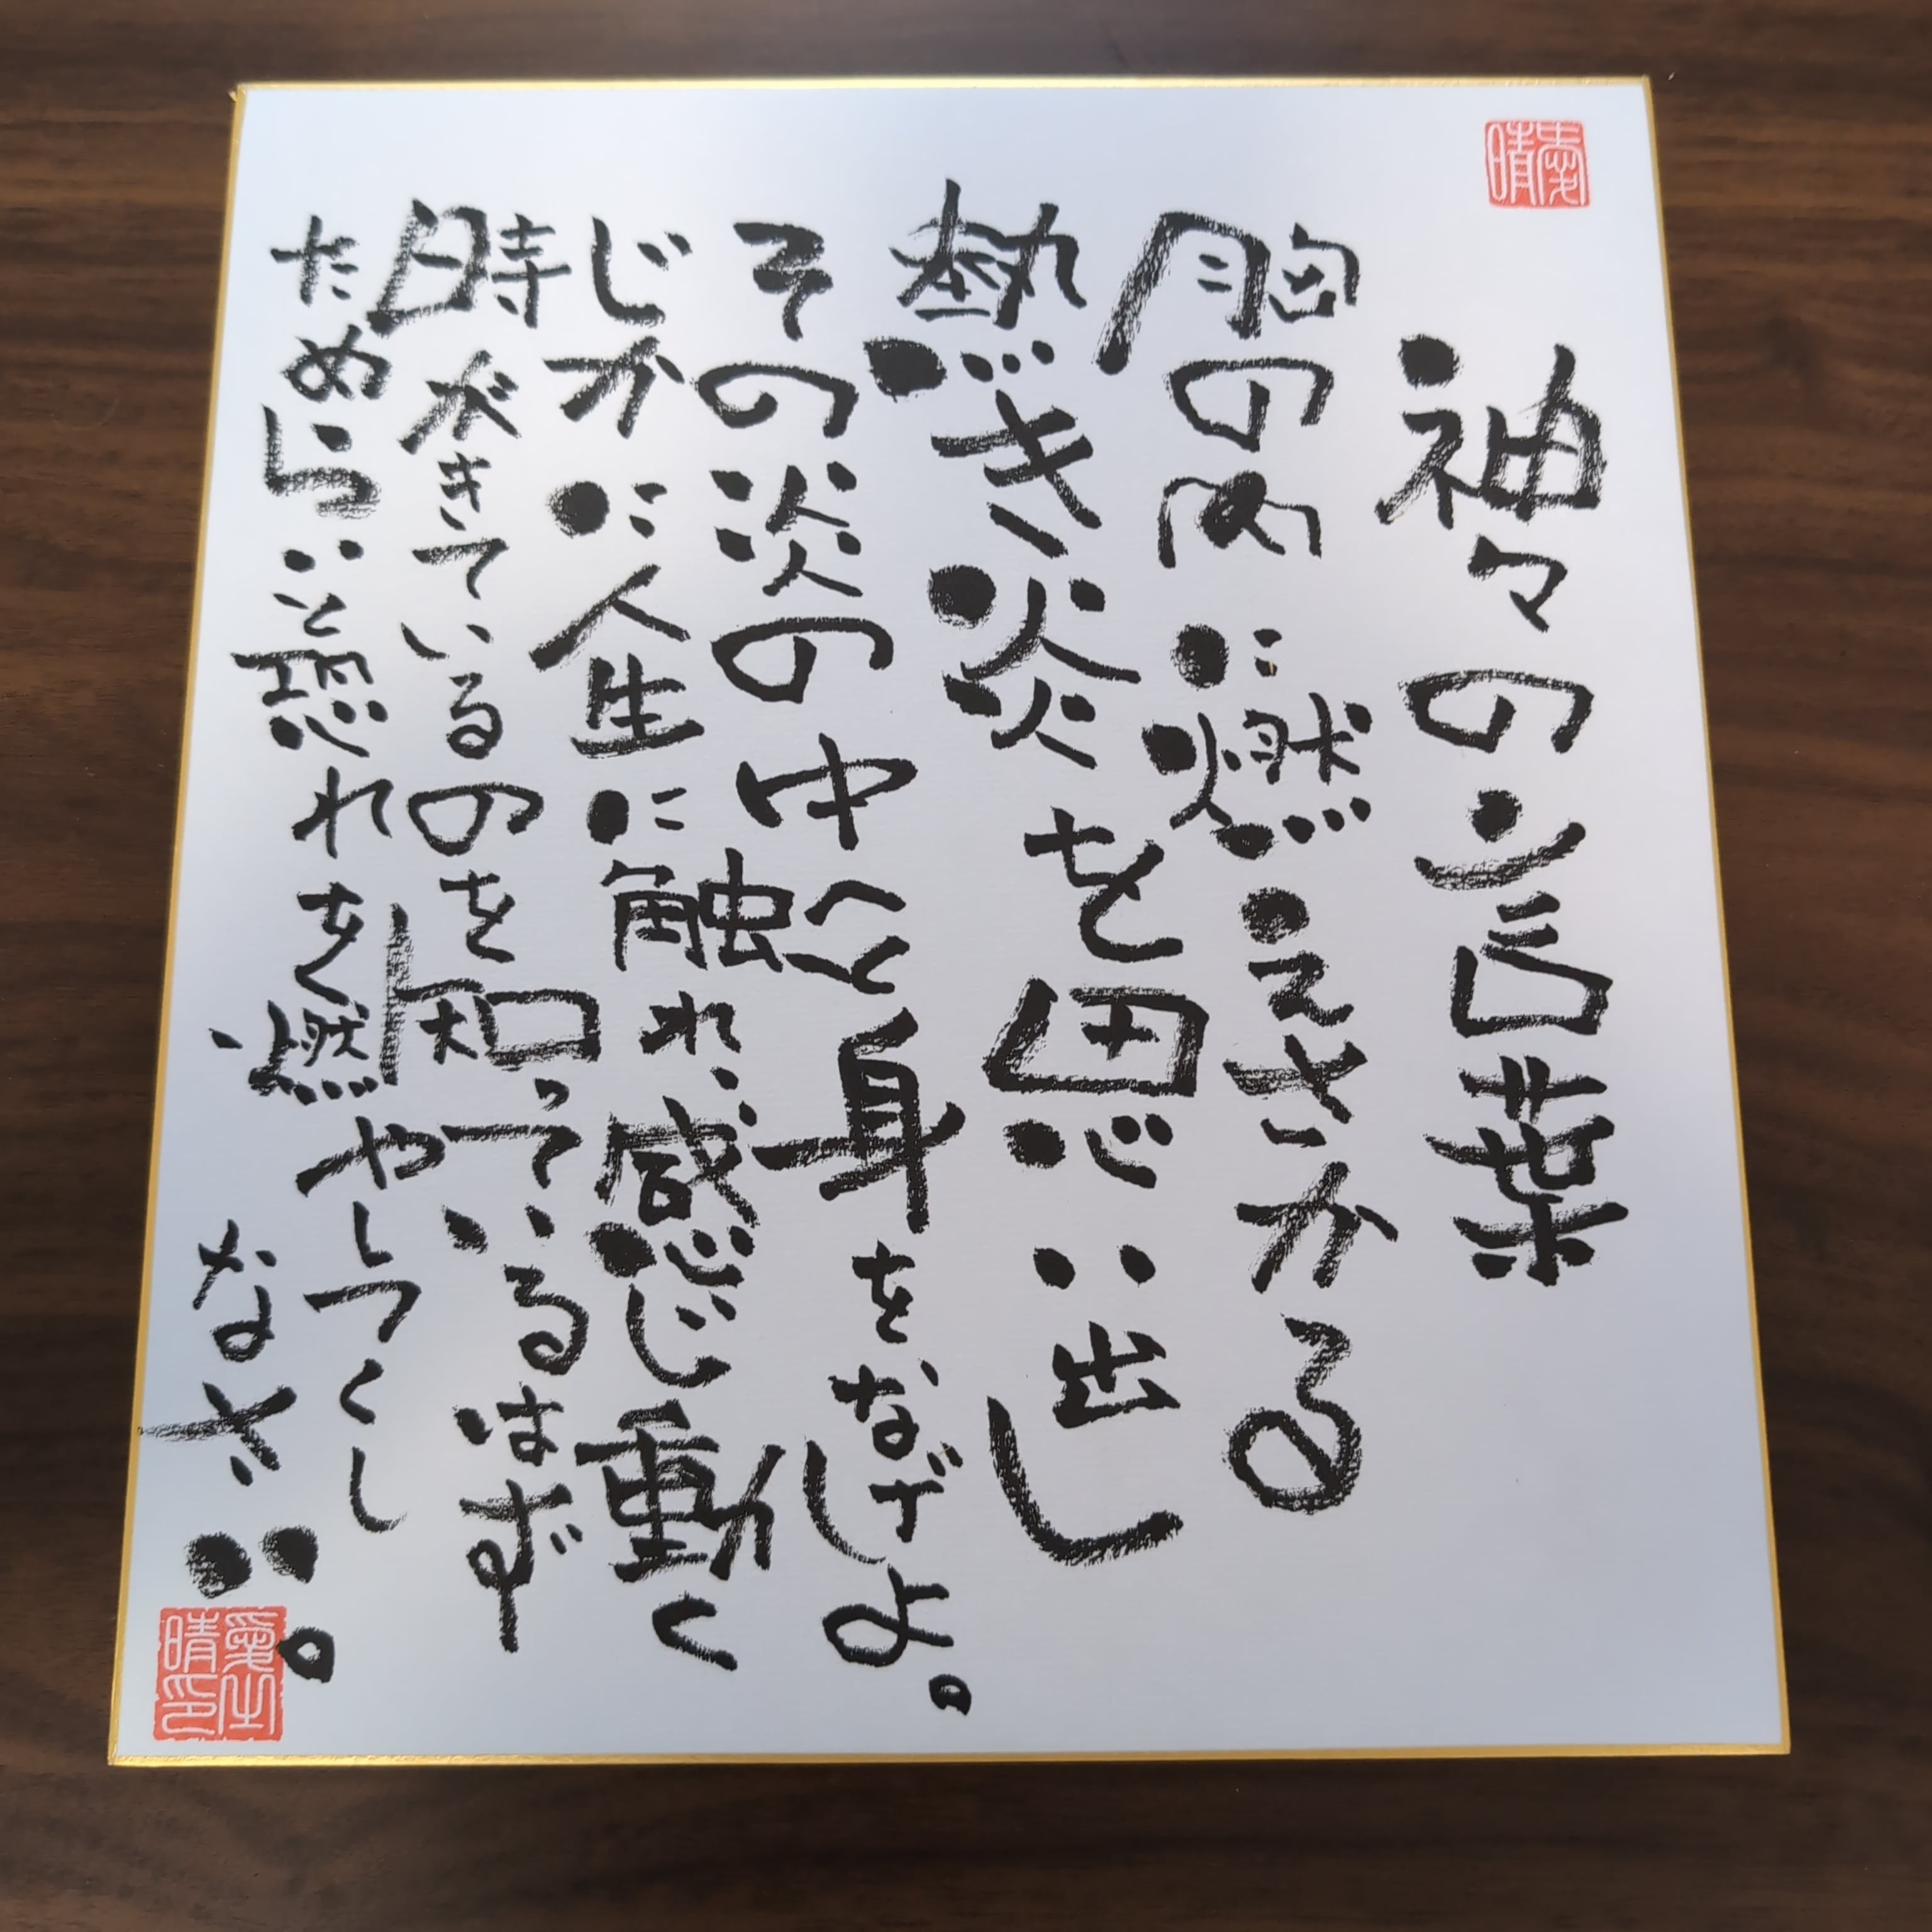 神々の言葉
胸の内に燃えさかる
熱き炎を思い出し
その炎の中へと身をなげだしよ。
じかに人生に触れ、感じ動く
時がきているのを知っているはず
ためらいと恐れを燃やしつくし
なさい。
愛晴
愛晴印